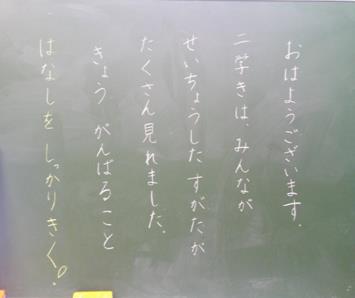 おはようございます。
二学きは、みんなが
せいちょうしたすがたが
たくさん見れました。
きょう がんばること
はなしを しっかりきく。